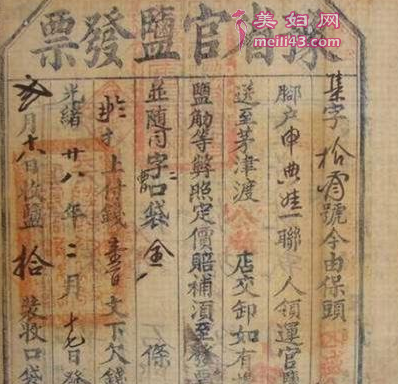 美妇网
meili43.com
豫省官鹽發票
集字拾號今由保頭
腳户申典娃一聯人領運官
送至茅津渡 店交卸如有
鹽觔等弊照定價賠補須至發票
並隨同字口袋 條
上付錢壹百文下欠錢
光緒廿八年二月十七日發
月十八日收鹽拾 裝收口袋